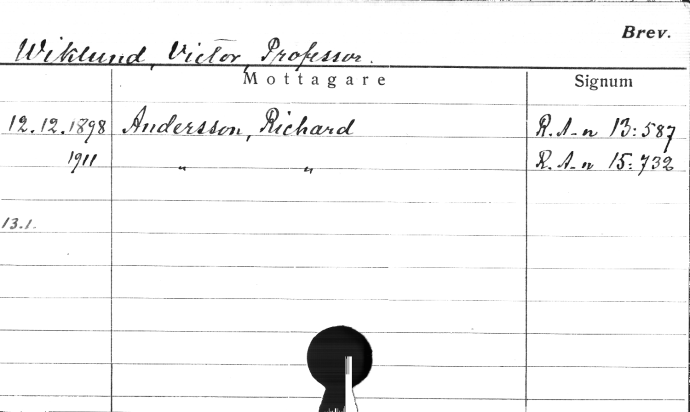 Brev.
Wiklund, Victor, Professor.
Mottagare Signum
12.12.1898 Andersson, Richard R. A-n 13:587
1911 " " R. A-n 15:732
13.1.